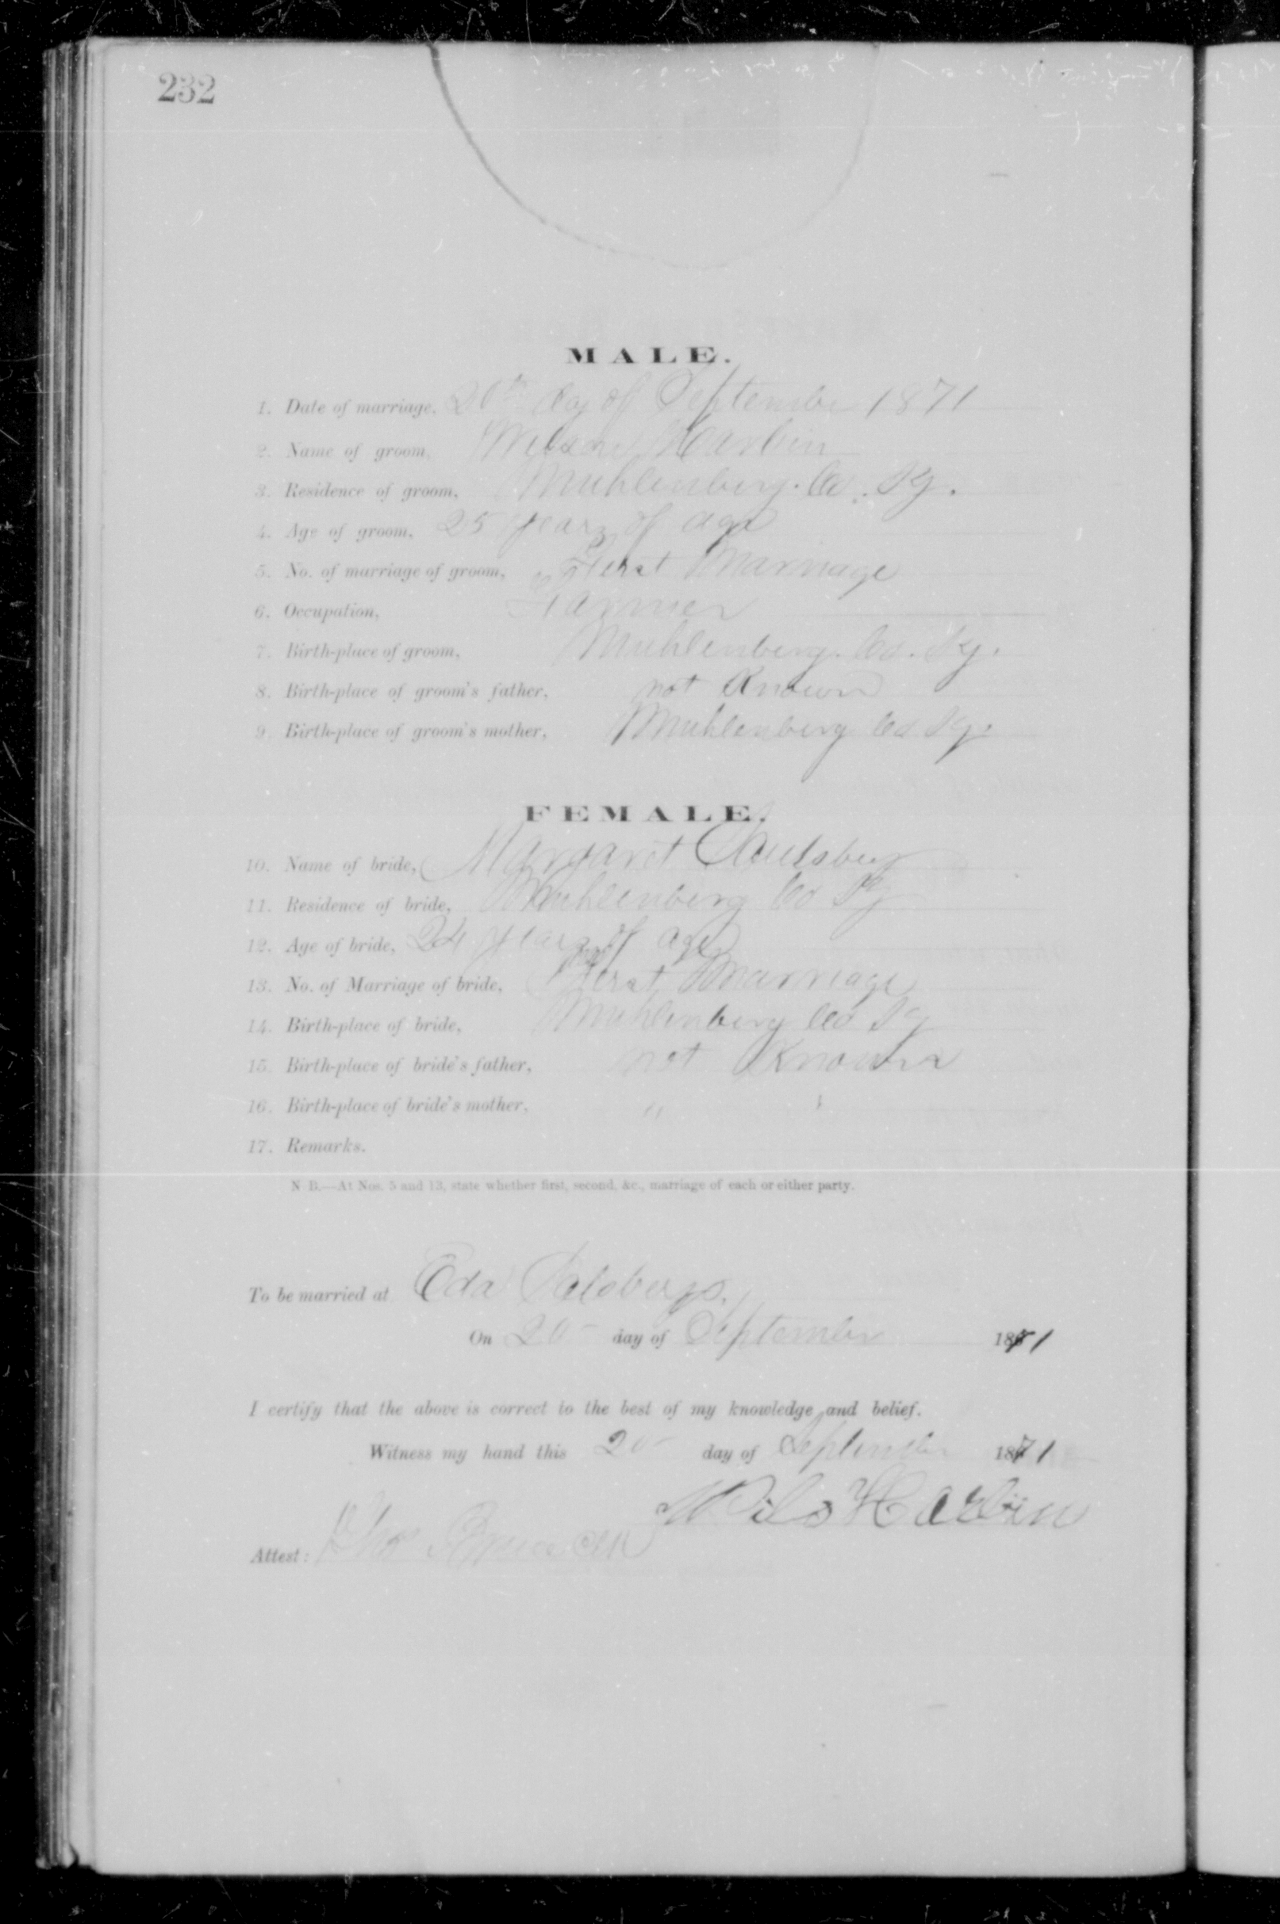 232
MALE.
1. Date of marriage, 20th day of September 1871
2. Name of groom, Wilson Harbin
3. Residence of groom, Muhlenberg. Co. Ky.
4. Age of groom, 25 years of age
5. No. of marriage of groom, First Marriage
6. Occupation, Farmer
7. Birth-place of groom, Muhlenberg. Co. Ky.
8. Birth-place of groom's father, not Known
9. Birth-place of groom's mother, Muhlenberg Co Ky.
FEMALE.
10. Name of bride, Margaret Saulsbury
11. Residence of bride, Muhlenberg Co Ky
12. Age of bride, 24 years of age
13. No. of Marriage of bride, First Marriage
14. Birth-place of bride, Muhlenberg Co Ky
15. Birth-place of bride's father, not Known
16. Birth-place of bride's mother, " "
17. Remarks.
N B.—At Nos. 5 and 13, state whether first, second, &c., marriage of each or either party.
To be married at Eda
On 20 day of September 1871
I certify that the above is correct to the best of my knowledge and belief.
Witness my hand this 20 day of September 1871
Wils Harbin
Attest: Thos Bruce Clk